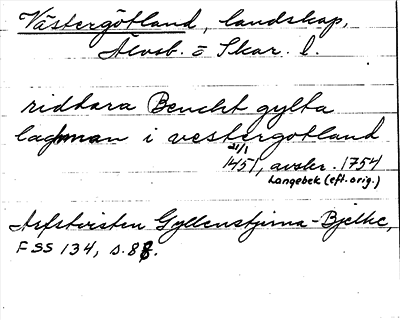 Västergötland, landskap,
Älvsb. o Skar. l.
riddara Benckt gylta
lagman i vestergotland
21/1
1451, avskr. 1754
Langebek (eft. orig.)
Arfstvisten Gyllenstjerna-Bjelke,
FSS 134, s. 88.